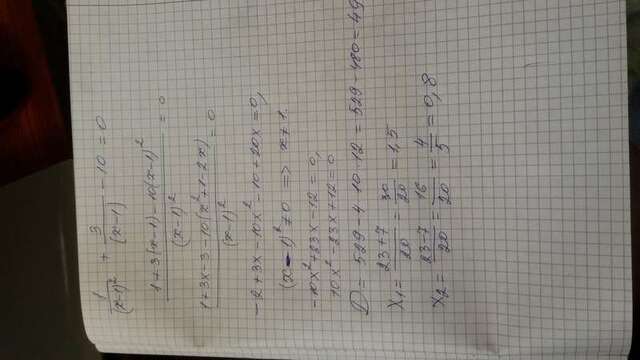 1/(x-1)² + 3/(x-1) - 10 = 0
(1+3(x-1)-10(x-1)²)/(x-1)² = 0
(1+3x-3-10(x²+1-2x))/(x-1)² = 0
-2+3x-10x²-10+20x=0,
(x-1)²≠0 => x≠1.
-10x²+23x-12=0,
10x²-23x+12=0
D = 529-4·10·12=529-480=49
x₁ = (23+7)/20 = 30/20 = 1,5
x₂ = (23-7)/20 = 16/20 = 4/5 = 0,8